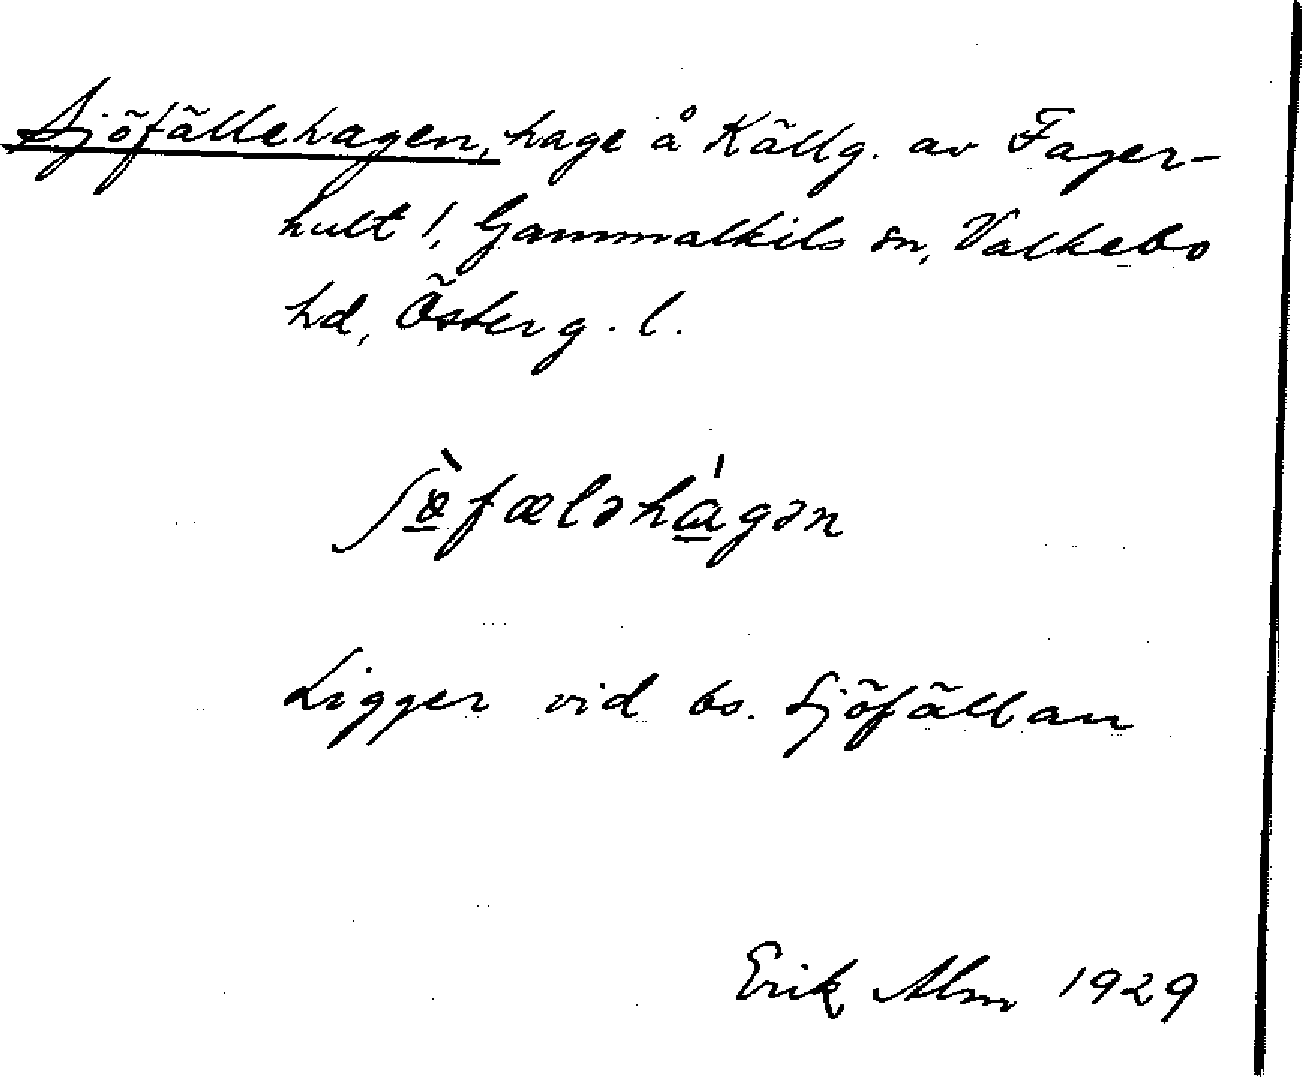 Sjöfällehagen, hage å Källg. av Fager-
hult!, Gammalkils sn, Valkebo
hd, Österg. l.
ʃø̀fæləhágən
Ligger vid bs. Sjöfällan
Erik Alm 1929